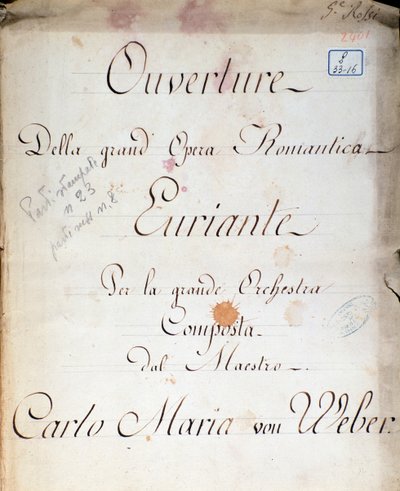 Gᵉ Rossi
2401
8
33-16
Ouverture
Della grand' Opera Romantica
Parti stampate
n 23
parti mss n. 8
Euriante
Per la grande Orchestra
Composta
Dal Maestro
Carlo Maria von Weber.